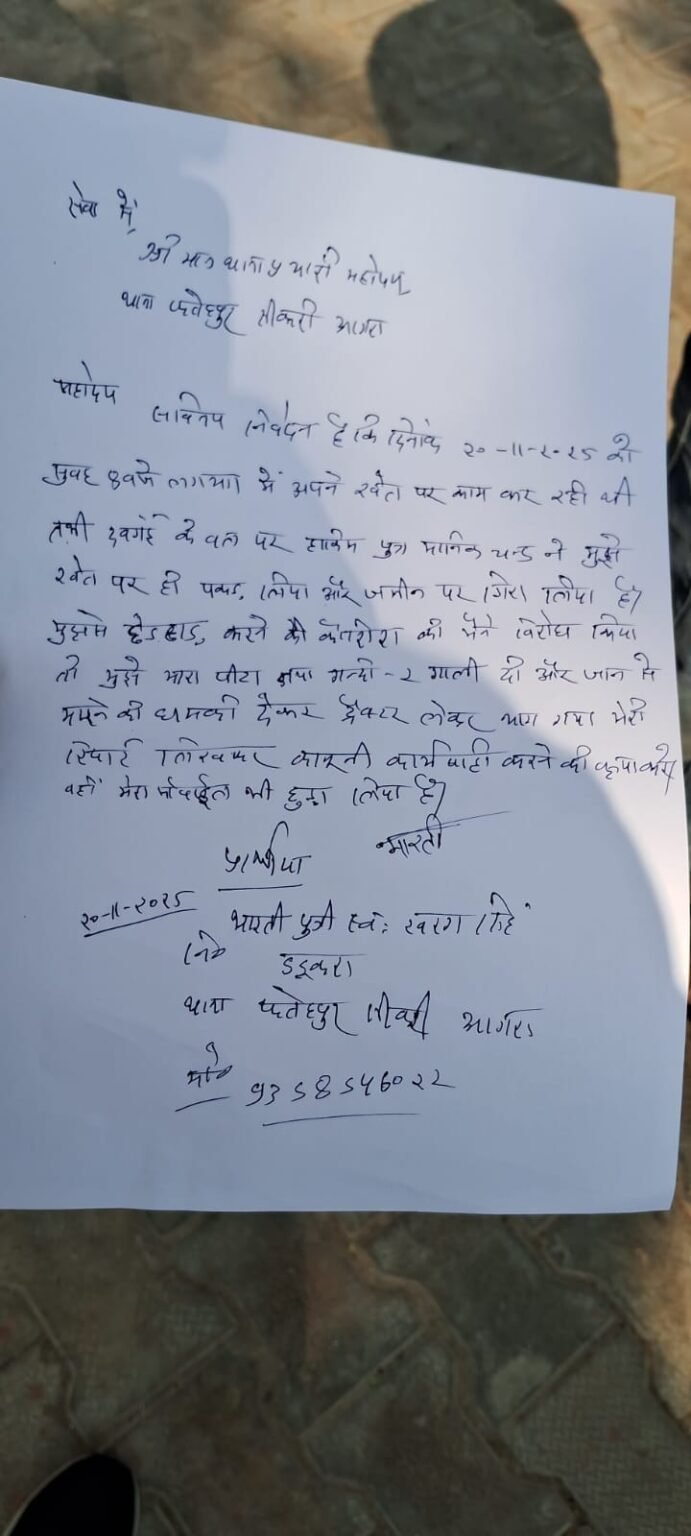 सेवा में,
श्री मान थाना प्रभारी महोदय
थाना फतेहपुर सीकरी आगरा
महोदय
सविनय निवेदन है कि दिनांक २०-११-२०२५ को
सुबह 8 बजे लगभग में अपने खेत पर काम कर रही थी
तभी दबंगई के बल पर हाकिम पुत्र मानिक चन्द ने मुझे
खेत पर ही पकड़ लिया और जमीन पर गिरा लिया है।
मुझसे छेडछाड़ करने की कोशिश की मैंने विरोध किया
तो मुझे मारा पीटा तथा गन्दी-२ गाली दी और जान से
मारने की धमकी देकर ट्रैक्टर लेकर भाग गया मेरी
रिपोर्ट लिखकर कानूनी कार्यवाही करने की कृपा करें
वहीं मेरा मोबाईल भी छुड़ा लिया है।
प्रार्थीया भारती
२०-११-२०२५
भारती पुत्री स्व: खरग सिंह
नि०
थाना फतेहपुर सीकरी आगरा
मो० 9358546022